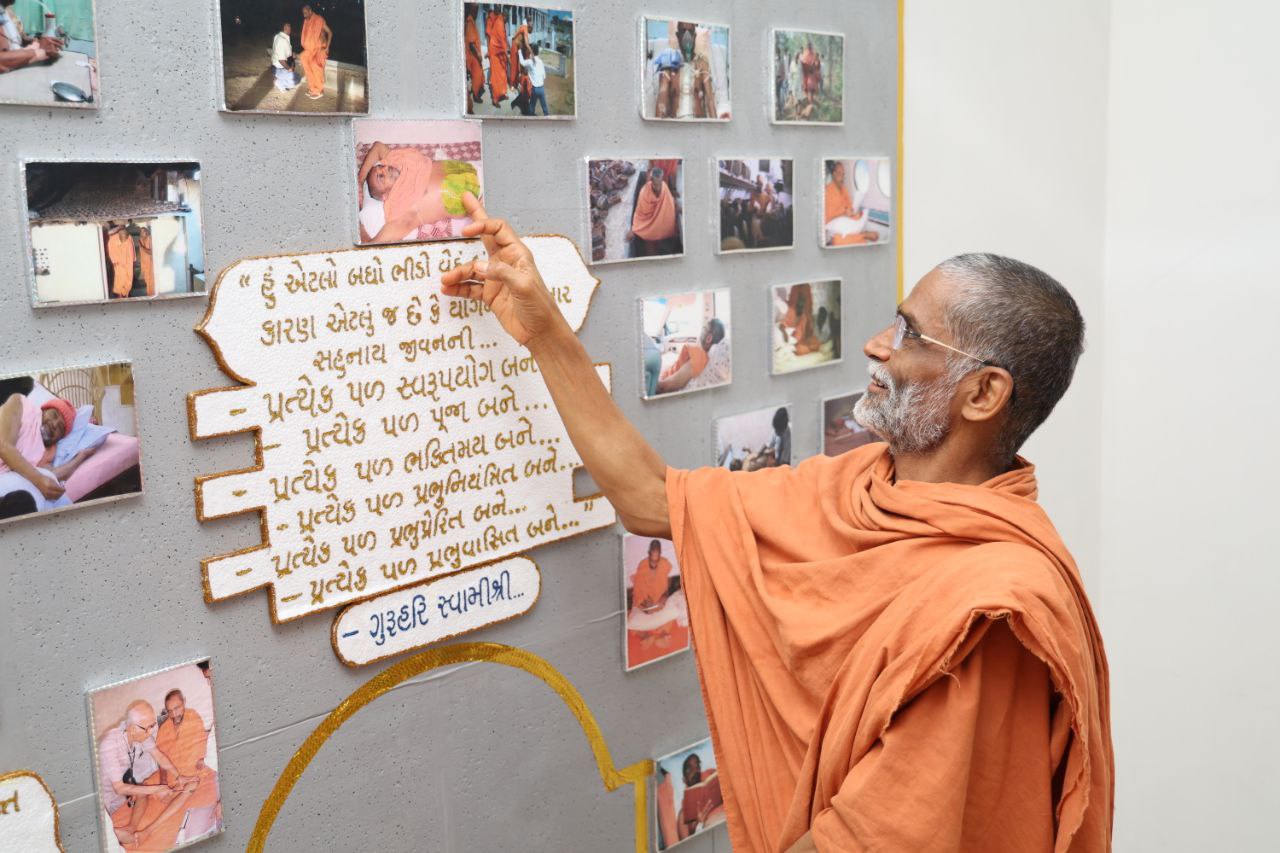 “ હું એટલો બધો ભીડો વેઠું
કારણ એટલું જ છે કે
સહુનાય જીવનની...
– પ્રત્યેક પળ સ્વરૂપયોગ બને
– પ્રત્યેક પળ પૂજા બને...
– પ્રત્યેક પળ ભક્તિમય બને...
– પ્રત્યેક પળ પ્રભુનિયંત્રિત બને...
– પ્રત્યેક પળ પ્રભુપ્રેરિત બને...
– પ્રત્યેક પળ પ્રભુવાસિત બને... ”
– ગુરુહરિ સ્વામીશ્રી...